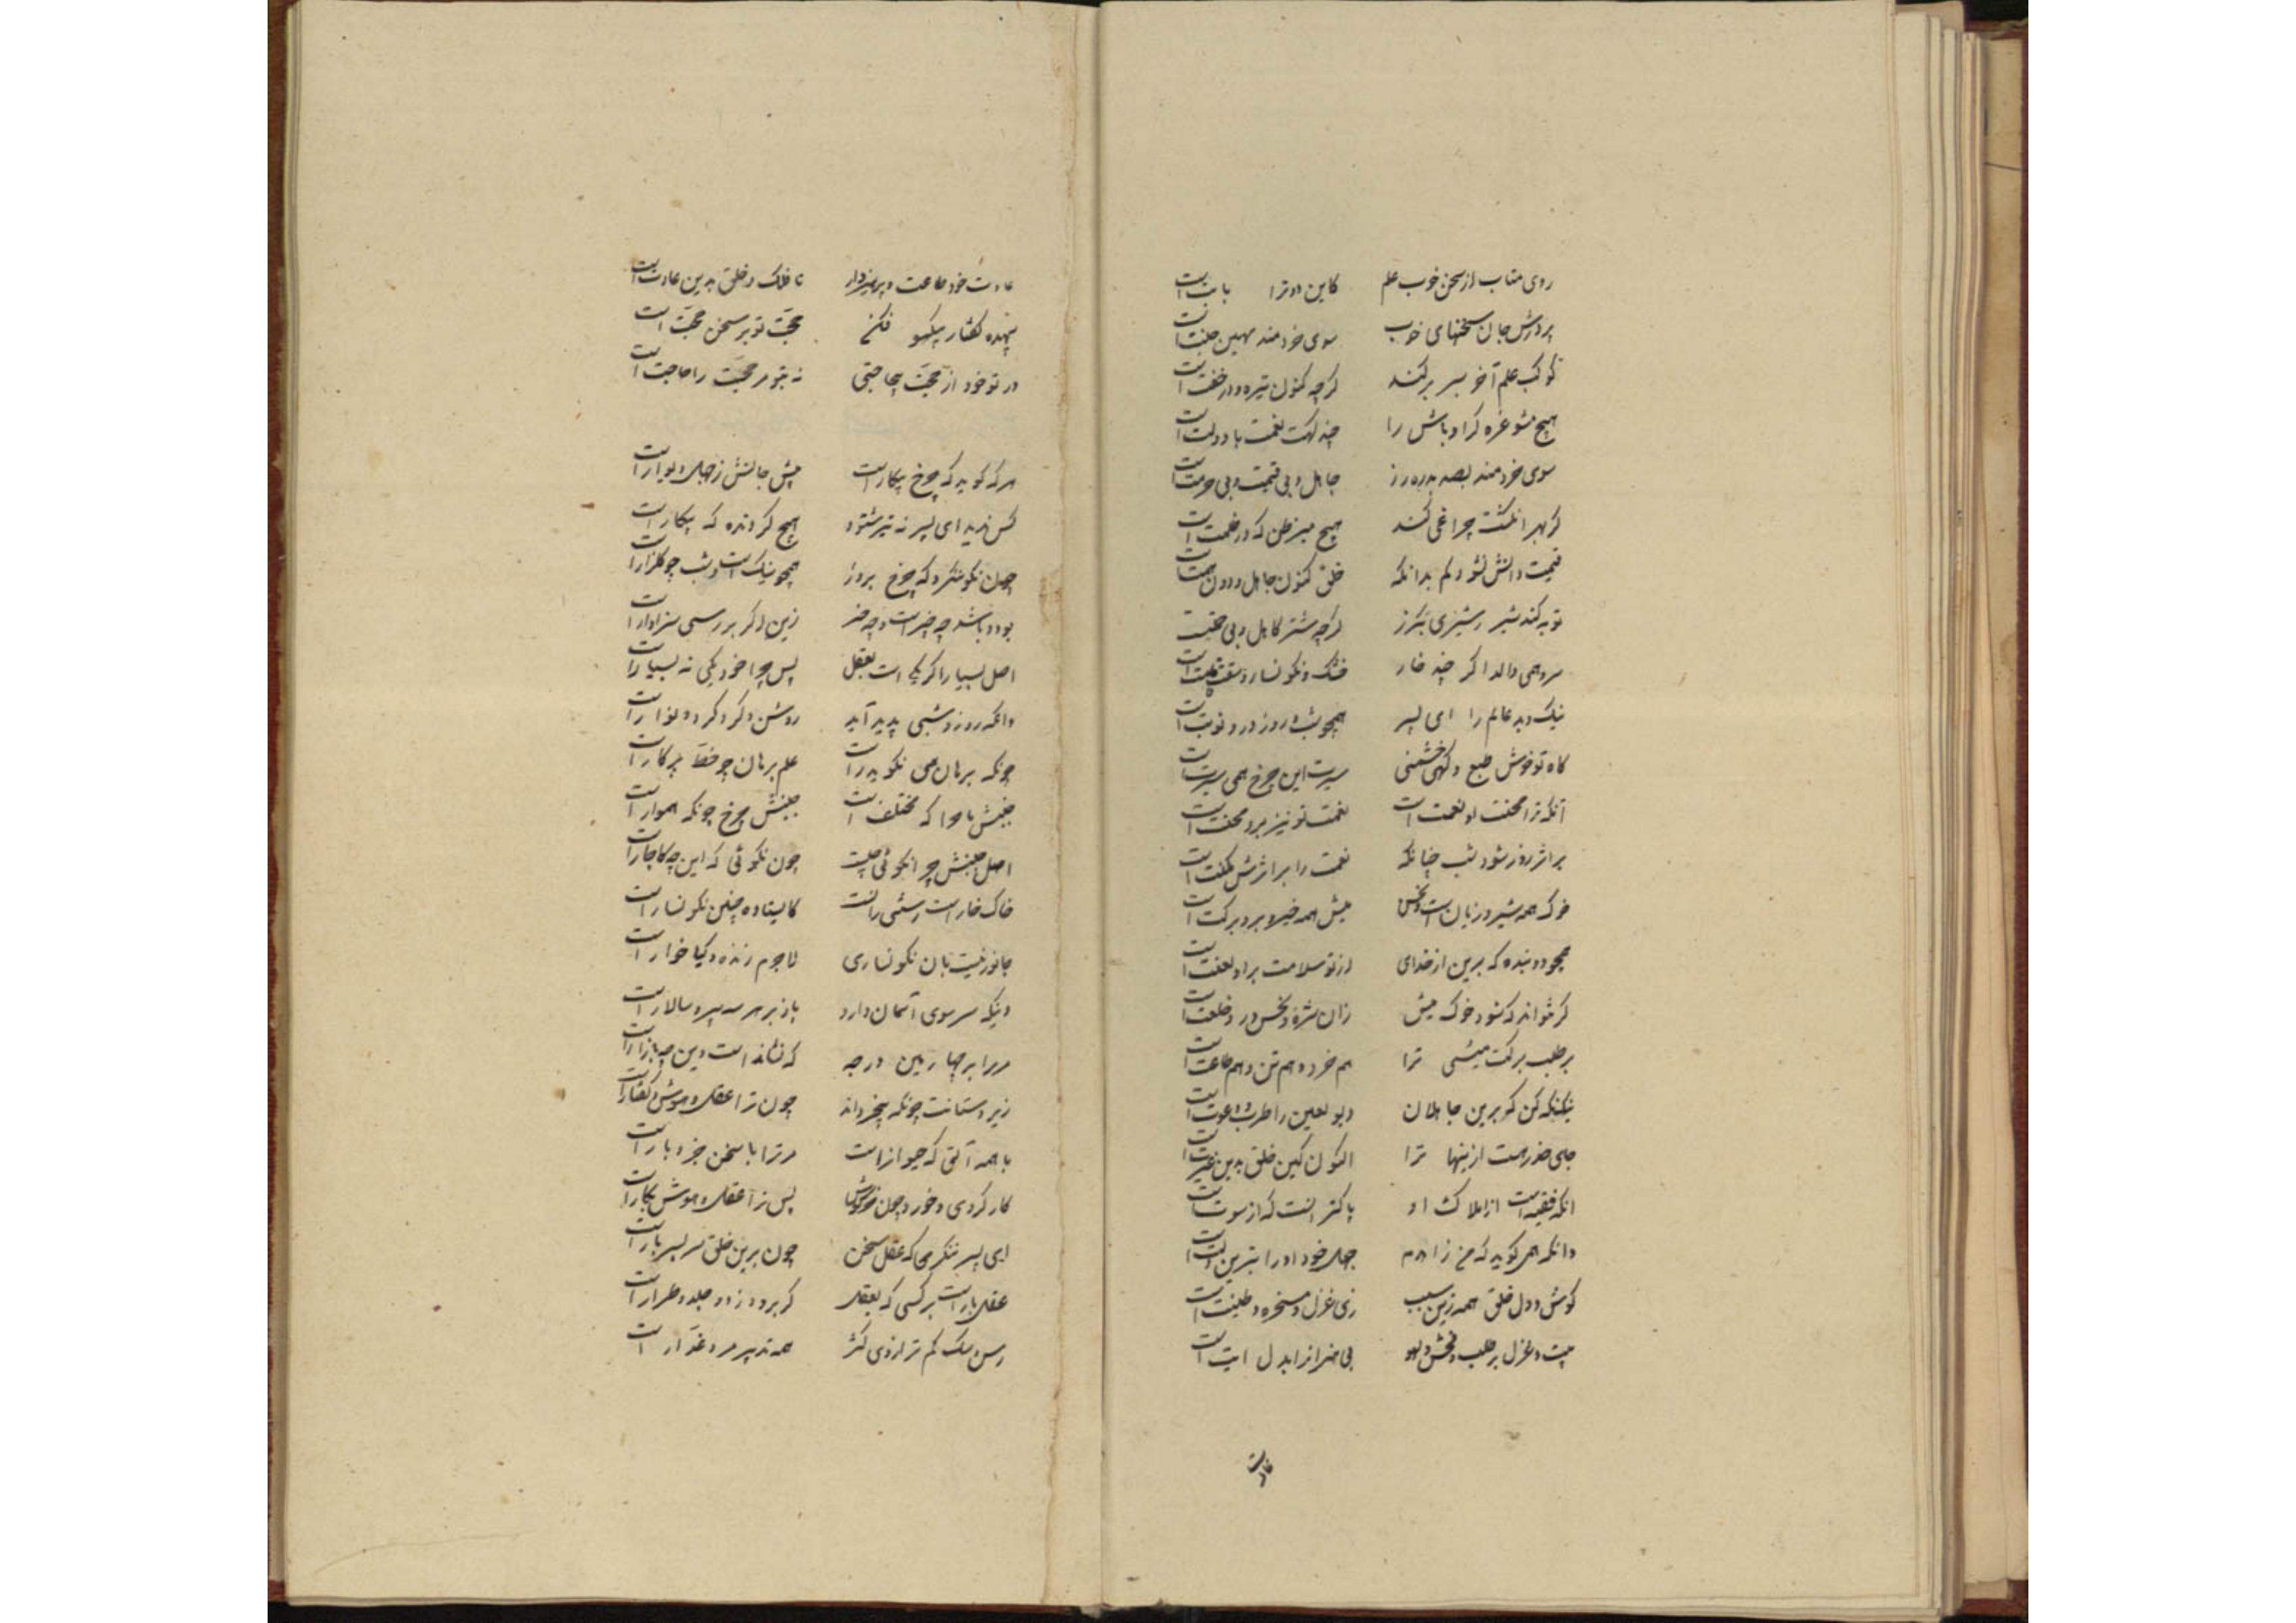 روی متاب از سخن خوب علم کاین دو ترا بابت است
پرورش جان سخنهای خوب سوی خردمند مهین جنت است
کوکب علم آخر سر بر کند گرچه کنون تیره و در خفت است
هیچ مشو غره گر اوباش را چند گهت نعمت با دولت است
سوی خردمند بصد بدره زر جاهل بی قیمت و بی حرمت است
گر بهر انگشت چراغی کند هیچ مبر ظن که در ظلمت است
قیمت دانش نشود کم بدانکه خلق کنون جاهل و دون همت است
توبه کند شیر ز شیری هرگز گرچه شتر کاهل و بی
سرو همی والد اگر چند خار خشک و نگونسار و
نیک و بد عالم را ای پسر همچو شب و روز درو نوبت است
گاه تو خوش طبع و گهی خشمنی سیرت این چرخ همی سیرت است
آنکه ترا محنت او نعمت است نعمت تو نیز برو محنت است
بر اثر روز شود شب چنانکه نعمت را بر اثرش نکبت است
خوک همه شر و زیان است و نحس میش همه خیر و برو برکت است
همچو دو بنده که برین از خدای از تو سلامت برو لعنت است
گر نتواند که شود خوک میش زان شره و نحس در و خلقت است
بر طلب برکت میشی ترا هم خرد و هم تن و هم طاعت است
نیک نگه کن که برین جاهلان دیو لعین را طرب و دعوت است
جای حذر هست ازینها ترا اکنون کین خلق بدین عبرت است
انکه فقیه است از املاک او پاکتر انست که از
وانکه همی گوید که من زاهدم جهل خود او را بترین
گوش و دل خلق همه زین سبب زی غزل و مسخره و طیبت است
بیت و غزل بر طلب فحش و لهو بی هنران را بدل ایت است
عادت
عادت خود طاعت و پرهیزدار تا فلک و خلق بدین عادت است
بیهده گفتار بیکسو فکن حجت تو بر سخن حجت است
در تو خود از حجت بیحاجتی نه بتو مر حجت را حاجت است
هرکه گوید که چرخ بیکار است پیش جانش ز جهل دیوار است
کس ندید ای پسر نه نیز شنود هیچ گردنده که بیکار است
چون نکو ننگرد که چرخ بروز همچو نیلست و شب چو گلزار است
بود و باشد چه چیز است و چه چیز زین اگر بررسی سزاوار است
اصل بسیار اگر یکی است بعقل پس چرا خود یکی نه بسیار است
وانکه روز و شبی پدید آید روشن و گرد گرد و نوار است
چونکه برهان همی نگوید راست علم برهان چو خط پرگار است
جنبش ما چرا که مختلف است جنبش چرخ چونکه هموار است
اصل جنبش چرا نگوئی چیست چون نگوئی که این چه کاچار است
خاک خار است رستنی زانست کایستاده چنین نگونسار است
جانور نیست بان نگونساری لاجرم زنده و گیا خوار است
وینکه سر سوی آسمان دارد باز بر هر سه میر و سالار است
مر را بر چهارمین درجه که نشانده است وین چه بازار است
زیر دستانت چونکه بیخردند چون ترا عقل و هوش و گفتار است
با همه آلتی که حیوانراست مر ترا با سخن خرد یار است
کار کردی و خورد چون پس ترا عقل و هوش بکار است
ای پسر ننگری که عقل و سخن چون برین خلق سر بسر بار است
عقل بار است بر کسی که بعقل گربز و دزد و حیله و طرار است
رسن سنگ کم ترازوی کژ همه تدبیر مرد غدار است